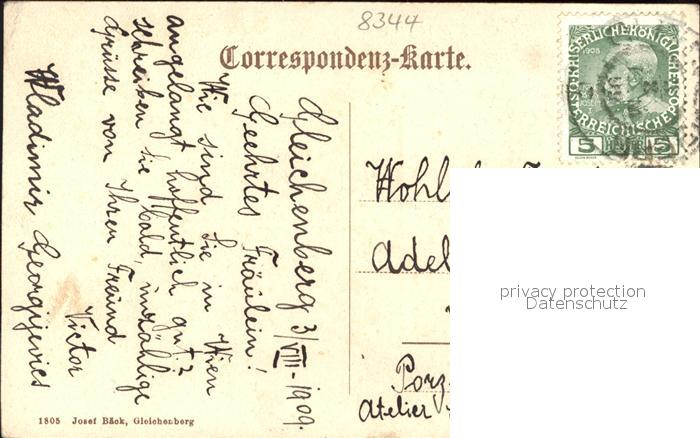 8344
Correspondenz-Karte.
KAISERLICHE KÖNIGLICHE
ÖSTERREICHISCHE POST
1908
5 5
Gleichenberg 3/VIII - 1909.
Geehrtes Fräulein!
Wie sind Sie in Wien
angelangt, hoffentlich gut?
schreiben Sie bald, unzählige
Grüsse von Ihren Freund
Victor
Wladimir Georgijevics
Wohl
Adel
Porz
Atelier
privacy protection
Datenschutz
1805 Josef Bäck, Gleichenberg